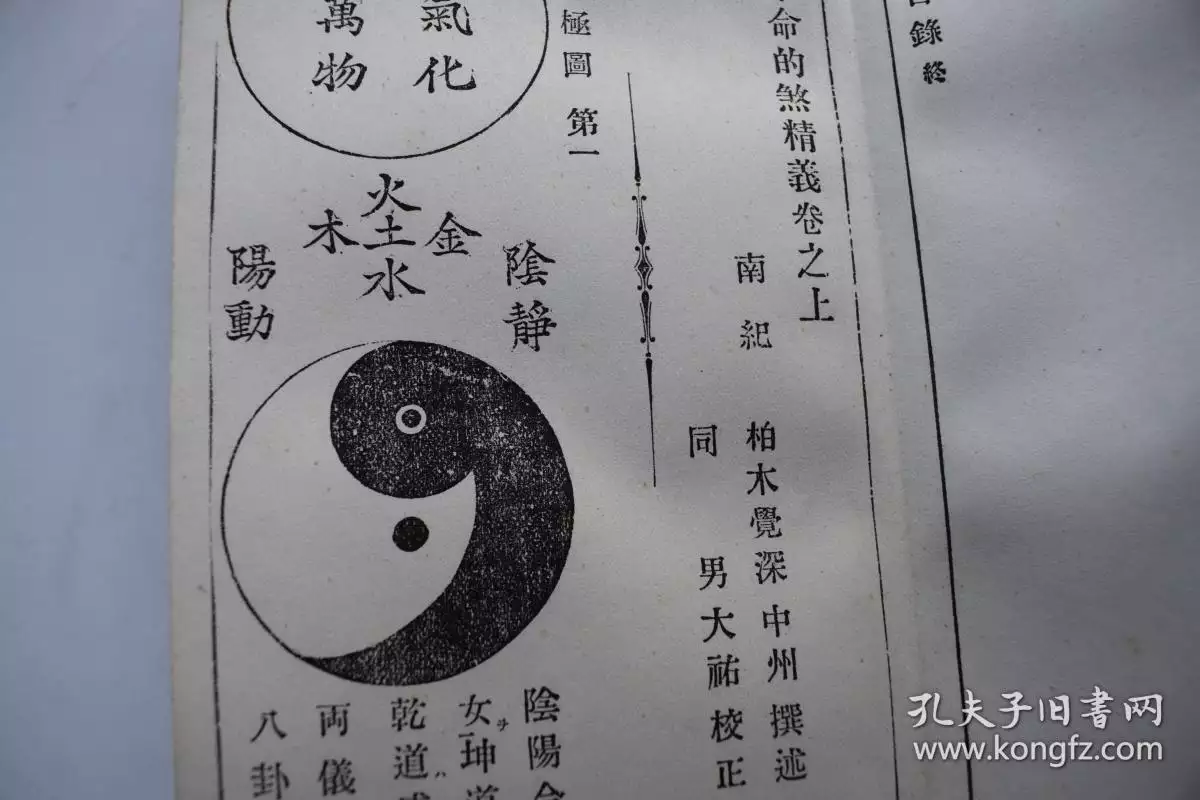 目錄終
命的煞精義卷之上
南紀
柏木覺深中州撰述
同 男大祐校正
極圖 第一
氣化
萬物
火
木土金
水
陰靜
陽動
陰陽合
女ヲ坤道
乾道成
両儀
八卦
孔夫子旧书网
www.kongfz.com